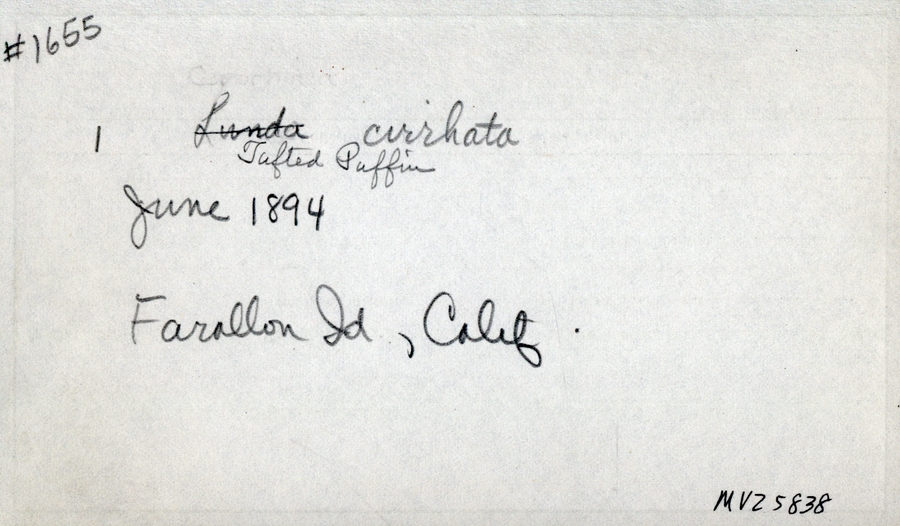 #1655
1 Lunda cirrhata
Tufted Puffin
June 1894
Farallon Id, Calif.
MVZ 5838